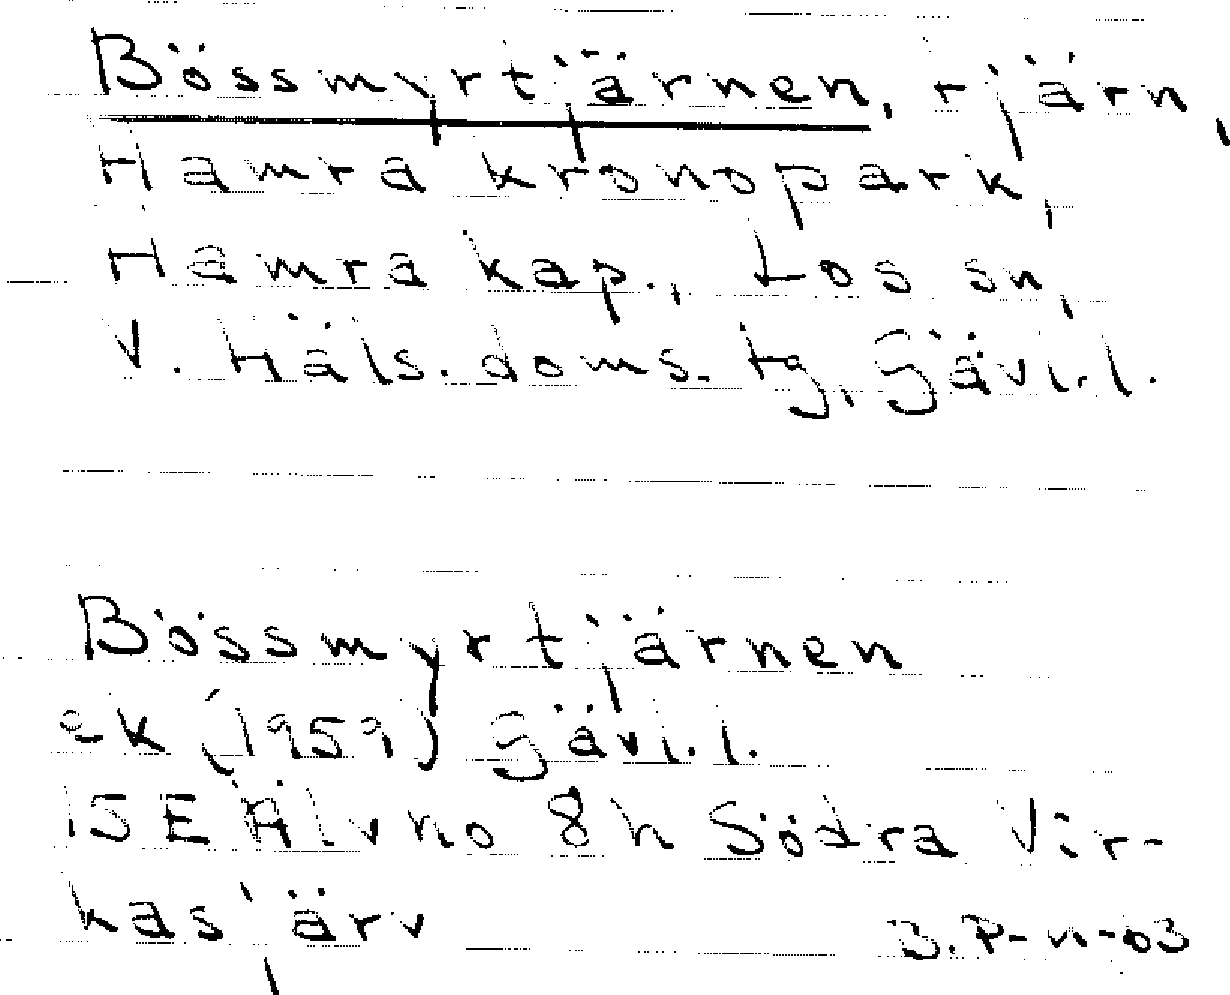 Bössmyrtjärnen, tjärn,
Hamra kronopark,
Hamra kap., Los sn,
V. Häls. doms. tg, Gävl. l.
Bössmyrtjärnen
ek (1959) Gävl. l.
15E Älv no 8h Södra Vir-
kasjärv
B.P-n-03